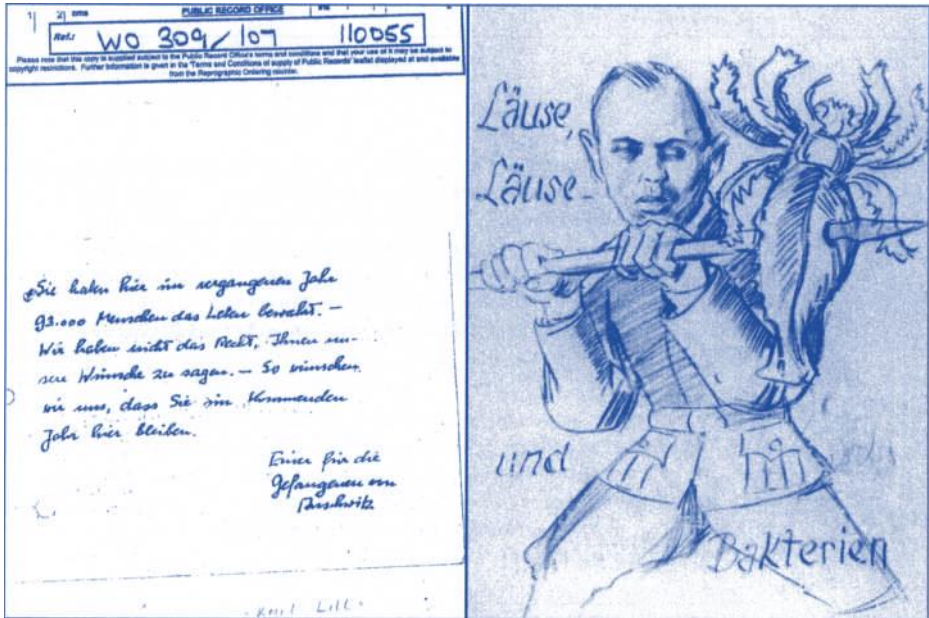 1| 2| cms PUBLIC RECORD OFFICE ins
Ref.: WO 309/107 110055
Please note that this copy is supplied subject to the Public Record Office's terms and conditions and that your use of it may be subject to
copyright restrictions. Further information is given in the 'Terms and Conditions of supply of Public Records' leaflet displayed at and available
from the Reprographic Ordering counter.
Sie haben hier im vergangenen Jahr
93.000 Menschen das Leben bewahrt. –
Wir haben nicht das Recht, Ihnen un-
sere Wünsche zu sagen. – So wünschen
wir uns, dass Sie im kommenden
Jahr hier bleiben.
Einer für die
Gefangenen von
Auschwitz
Karl Lill
Läuse,
Läuse-
und
Bakterien